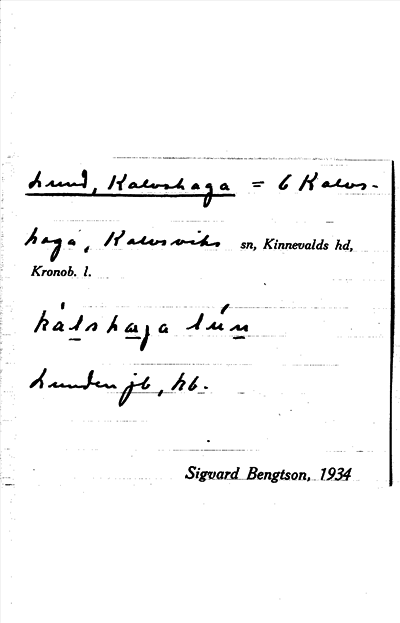 Lund, Kalvshaga = 6 Kalvs-
haga, Kalvsviks sn, Kinnevalds hd,
Kronob. l.
kálshaga lún
Lunden jb, kb.
Sigvard Bengtson, 1934